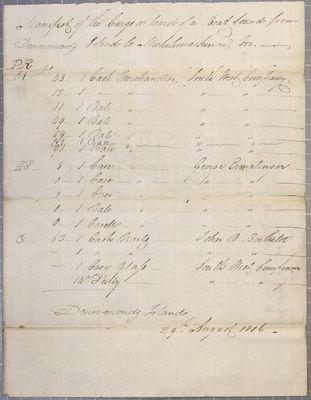 Manifest of the Cargo on board of a Boat bound from
Drummonds Islands to Michilimackinac, viz.
43 1 Cask Merchandise, South West Company
12 1 " " " "
41 1 Bale " " "
49 1 Bale " " "
59 1 Bale " " "
1 Bale " " "
1 Bale " " "
5 1 Case " George Ermatinger
1 1 Case " " "
1 1 Case " " "
8 1 Bale " " "
9 1 Cassette " " "
63 1 Cask Nails John B. Berthelot
1 " " "
1 Case Glass South West Company
" "
Drummonds Islands
29th August 1816